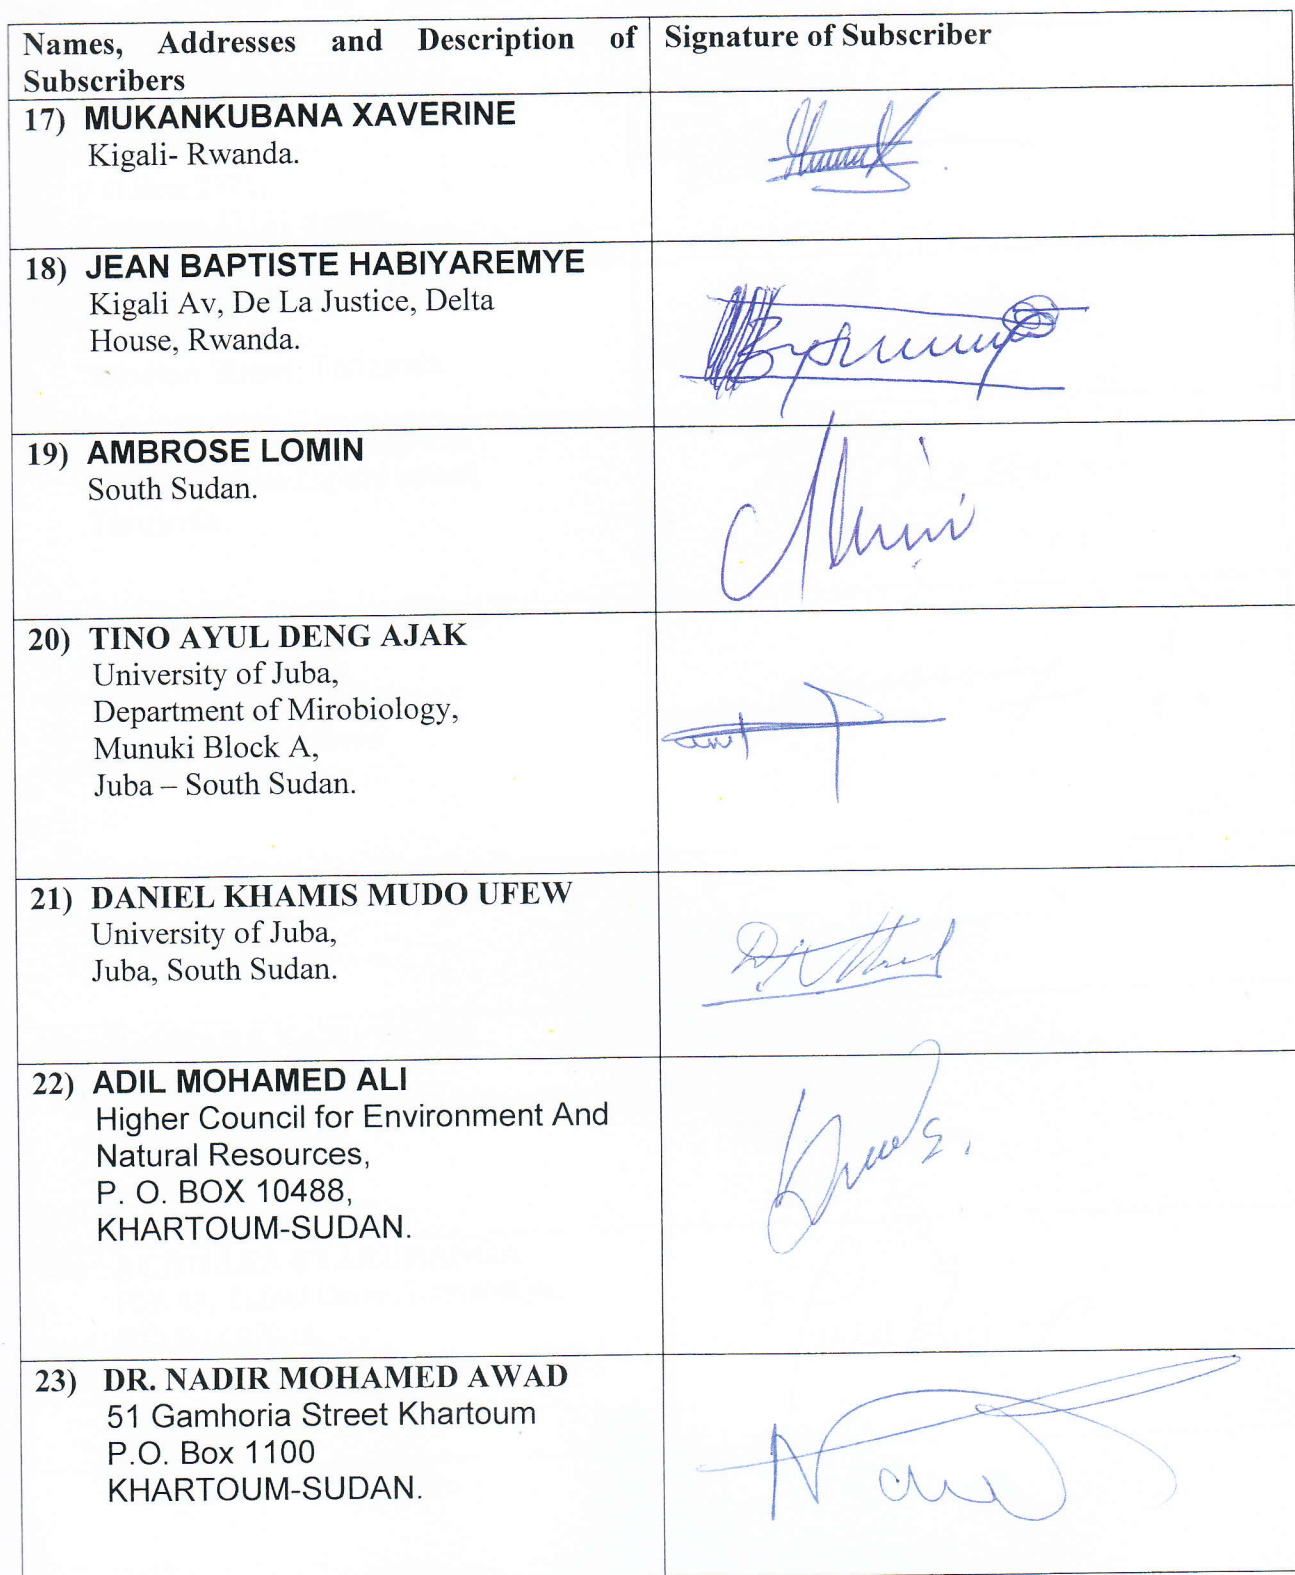 Names, Addresses and Description of
Subscribers
Signature of Subscriber
17) MUKANKUBANA XAVERINE
Kigali- Rwanda.
18) JEAN BAPTISTE HABIYAREMYE
Kigali Av, De La Justice, Delta
House, Rwanda.
19) AMBROSE LOMIN
South Sudan.
20) TINO AYUL DENG AJAK
University of Juba,
Department of Mirobiology,
Munuki Block A,
Juba – South Sudan.
21) DANIEL KHAMIS MUDO UFEW
University of Juba,
Juba, South Sudan.
22) ADIL MOHAMED ALI
Higher Council for Environment And
Natural Resources,
P. O. BOX 10488,
KHARTOUM-SUDAN.
23) DR. NADIR MOHAMED AWAD
51 Gamhoria Street Khartoum
P.O. Box 1100
KHARTOUM-SUDAN.